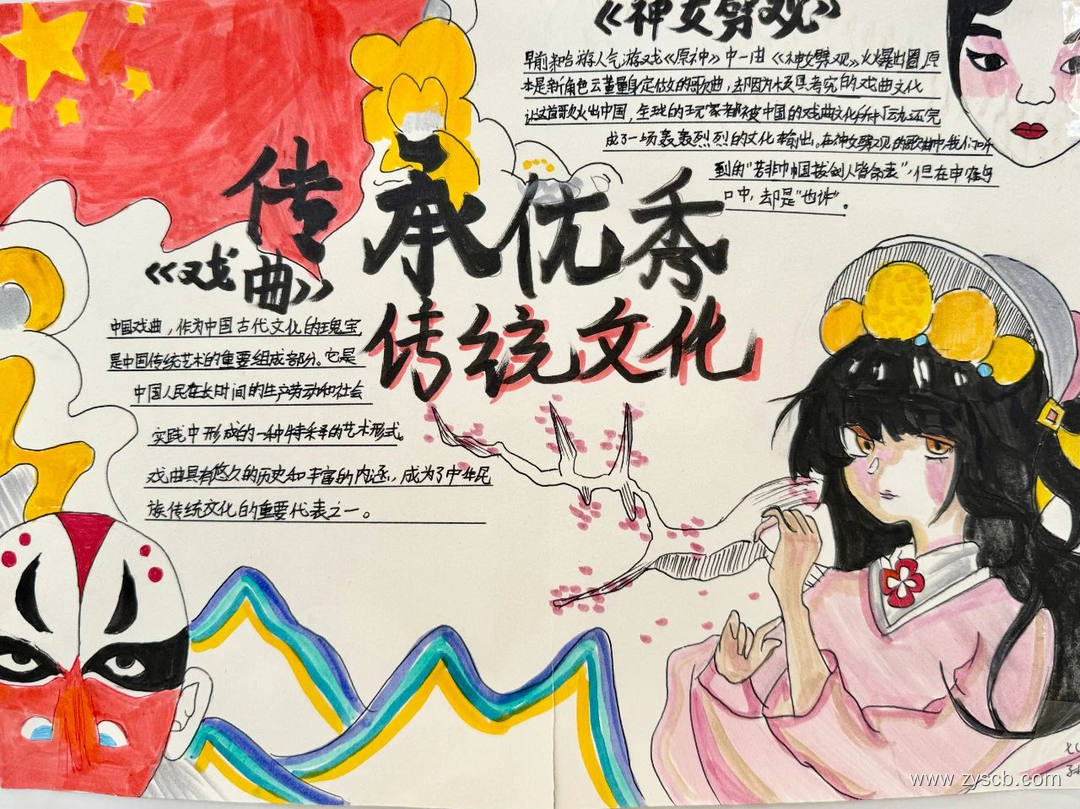 《神女劈观》
早前米哈游人气游戏《原神》中一曲《神女劈观》火爆出圈,原
本是新角色云堇量身定做的歌曲,却因为极具考究的戏曲文化
让这首歌火出中国,全球的玩家者都被中国的戏曲文化所 完
成了一场轰轰烈烈的文化输出。在神女劈观的歌曲中我们
到的"若非巾帼拔剑人皆命丧",但在申鹤
口中,却是"也许"。
传承优秀
传统文化
《戏曲》
中国戏曲,作为中国古代文化的瑰宝,
是中国传统艺术的重要组成部分。它是
中国人民在长时间的生产劳动和社会
实践中形成的一种特殊的艺术形式。
戏曲具有悠久的历史和丰富的内涵,成为了中华民
族传统文化的重要代表之一。
www.zyscb.com